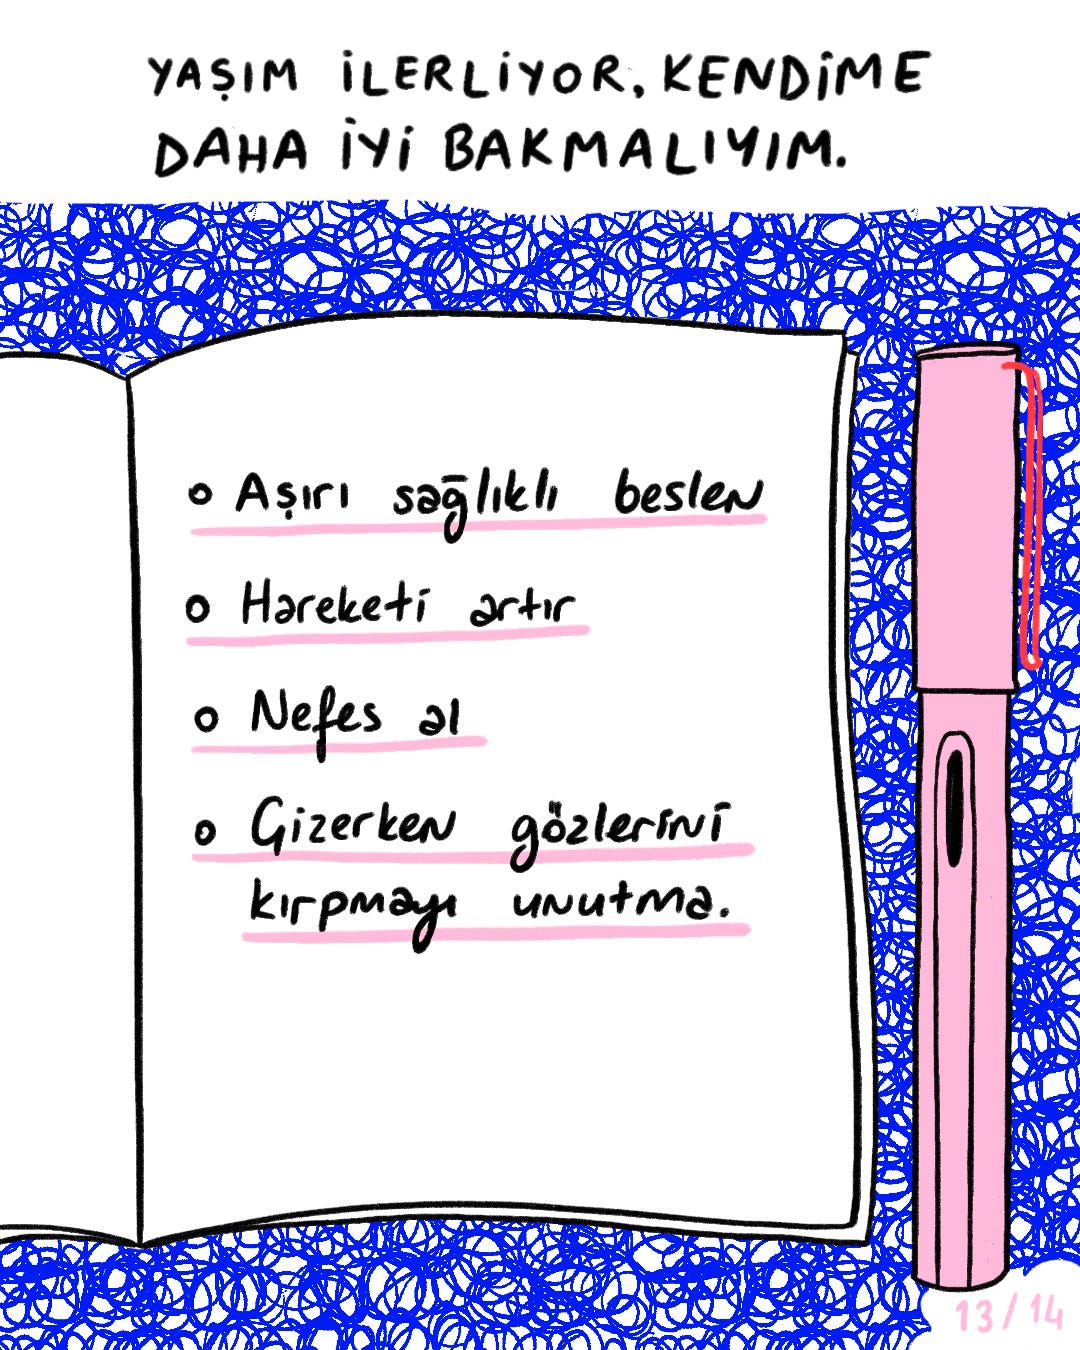 YAŞIM İLERLİYOR, KENDİME
DAHA İYİ BAKMALIYIM.
Aşırı sağlıklı beslen
Hareketi artır
Nefes al
Gizerken gözlerini
kırpmayı unutma.
13/14